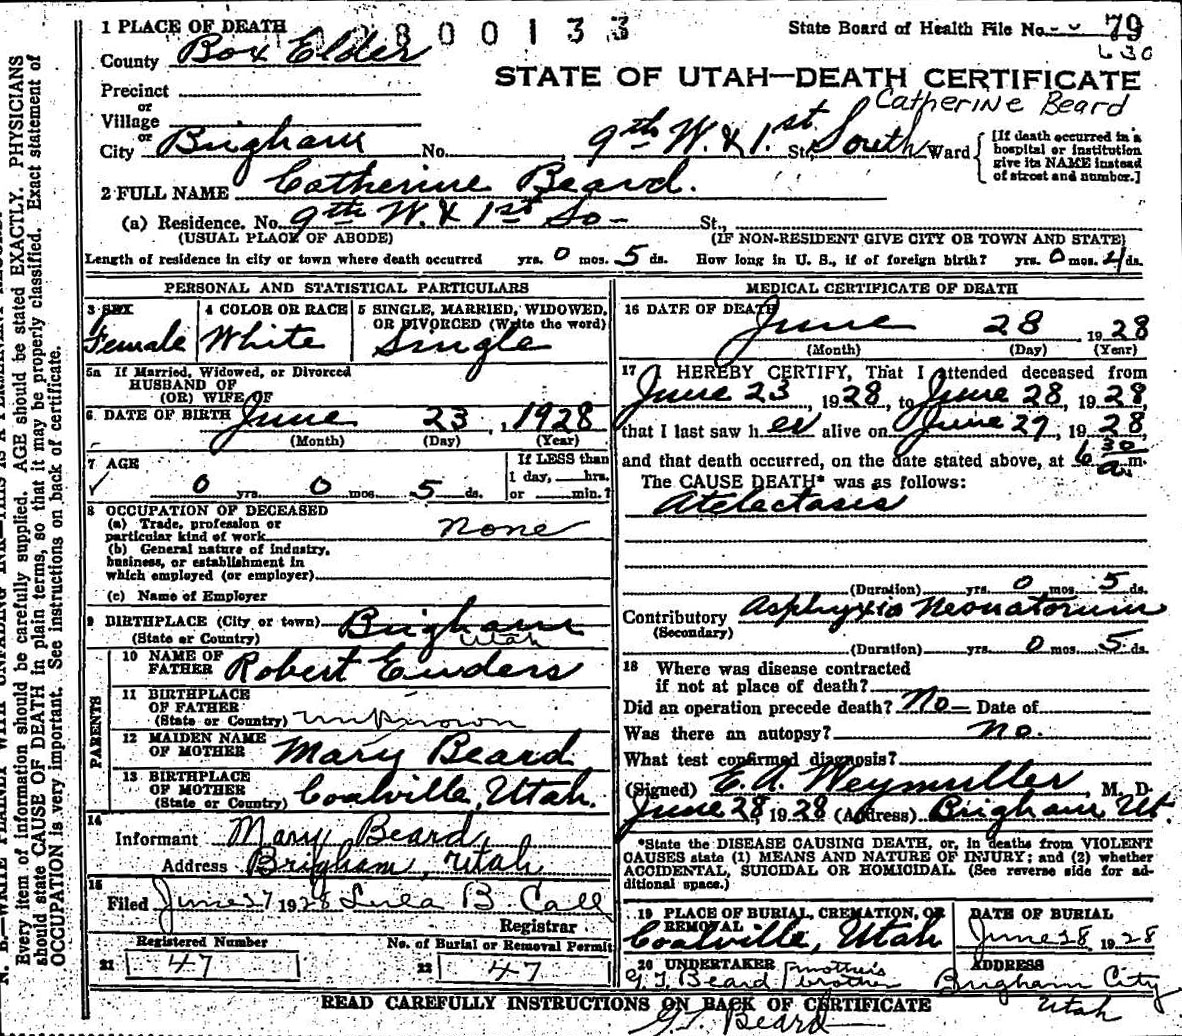 1 PLACE OF DEATH 2800133 State Board of Health File No. 79
County Box Elder 630
STATE OF UTAH—DEATH CERTIFICATE
Precinct
or
Village
Catherine Beard
or
City Brigham No. 9th W. & 1st St., South Ward
[If death occurred in a hospital or institution give its NAME instead of street and number.]
2 FULL NAME Catherine Beard.
(a) Residence. No. 9th W. & 1st So- St.,
(USUAL PLACE OF ABODE) (IF NON-RESIDENT GIVE CITY OR TOWN AND STATE)
Length of residence in city or town where death occurred yrs. 0 mos. 5 ds. How long in U. S., if of foreign birth? yrs. 0 mos. ds.
PERSONAL AND STATISTICAL PARTICULARS
3 SEX Female
4 COLOR OR RACE White
5 SINGLE, MARRIED, WIDOWED, OR DIVORCED (Write the word) Single
5a If Married, Widowed, or Divorced
HUSBAND OF
(OR) WIFE OF
6. DATE OF BIRTH June 23, 1928
(Month) (Day) (Year)
7 AGE 0 yrs. 0 mos 5 ds.
If LESS than
1 day, hrs.
or min.?
8 OCCUPATION OF DECEASED
(a) Trade, profession or
particular kind of work None
(b) General nature of industry,
business, or establishment in
which employed (or employer)
(c) Name of Employer
9 BIRTHPLACE (City or town) Brigham
(State or Country) Utah
PARENTS
10 NAME OF FATHER Robert Enders
11 BIRTHPLACE OF FATHER (State or Country) unknown
12 MAIDEN NAME OF MOTHER Mary Beard
13 BIRTHPLACE OF MOTHER (State or Country) Coalville, Utah.
14
Informant Mary Beard
Address Brigham, Utah
15
Filed June 27 1928 Lula B. Call
Registrar
Registered Number No. of Burial or Removal Permit
21 47 22 47
MEDICAL CERTIFICATE OF DEATH
16 DATE OF DEATH June 28 1928
(Month) (Day) (Year)
17 I HEREBY CERTIFY, That I attended deceased from
June 23, 1928, to June 28, 1928
that I last saw her alive on June 27, 1928,
and that death occurred, on the date stated above, at 6 30 a.m.
The CAUSE DEATH* was as follows:
Atelectasis
(Duration) yrs. 0 mos. 5 ds.
Contributory Asphyxia Neonatorum
(Secondary)
(Duration) yrs. 0 mos. 5 ds.
18 Where was disease contracted
if not at place of death?
Did an operation precede death? No— Date of
Was there an autopsy? no.
What test confirmed diagnosis?
(Signed) E. A. Weymuller, M. D.
June 28 1928 (Address) Brigham Ut.
*State the DISEASE CAUSING DEATH, or, in deaths from VIOLENT
CAUSES state (1) MEANS AND NATURE OF INJURY; and (2) whether
ACCIDENTAL, SUICIDAL OR HOMICIDAL. (See reverse side for ad-
ditional space.)
19 PLACE OF BURIAL, CREMATION, OR REMOVAL Coalville, Utah
DATE OF BURIAL June 28, 1928
20 UNDERTAKER G. T. Beard mother's brother
ADDRESS Brigham City Utah
READ CAREFULLY INSTRUCTIONS ON BACK OF CERTIFICATE
G. T. Beard
N. B.—WRITE PLAINLY WITH UNFADING INK—THIS IS A PERMANENT
Every item of information should be carefully supplied. AGE should be stated EXACTLY. PHYSICIANS
should state CAUSE OF DEATH in plain terms, so that it may be properly classified. Exact statement of
OCCUPATION is very important. See instructions on back of certificate.